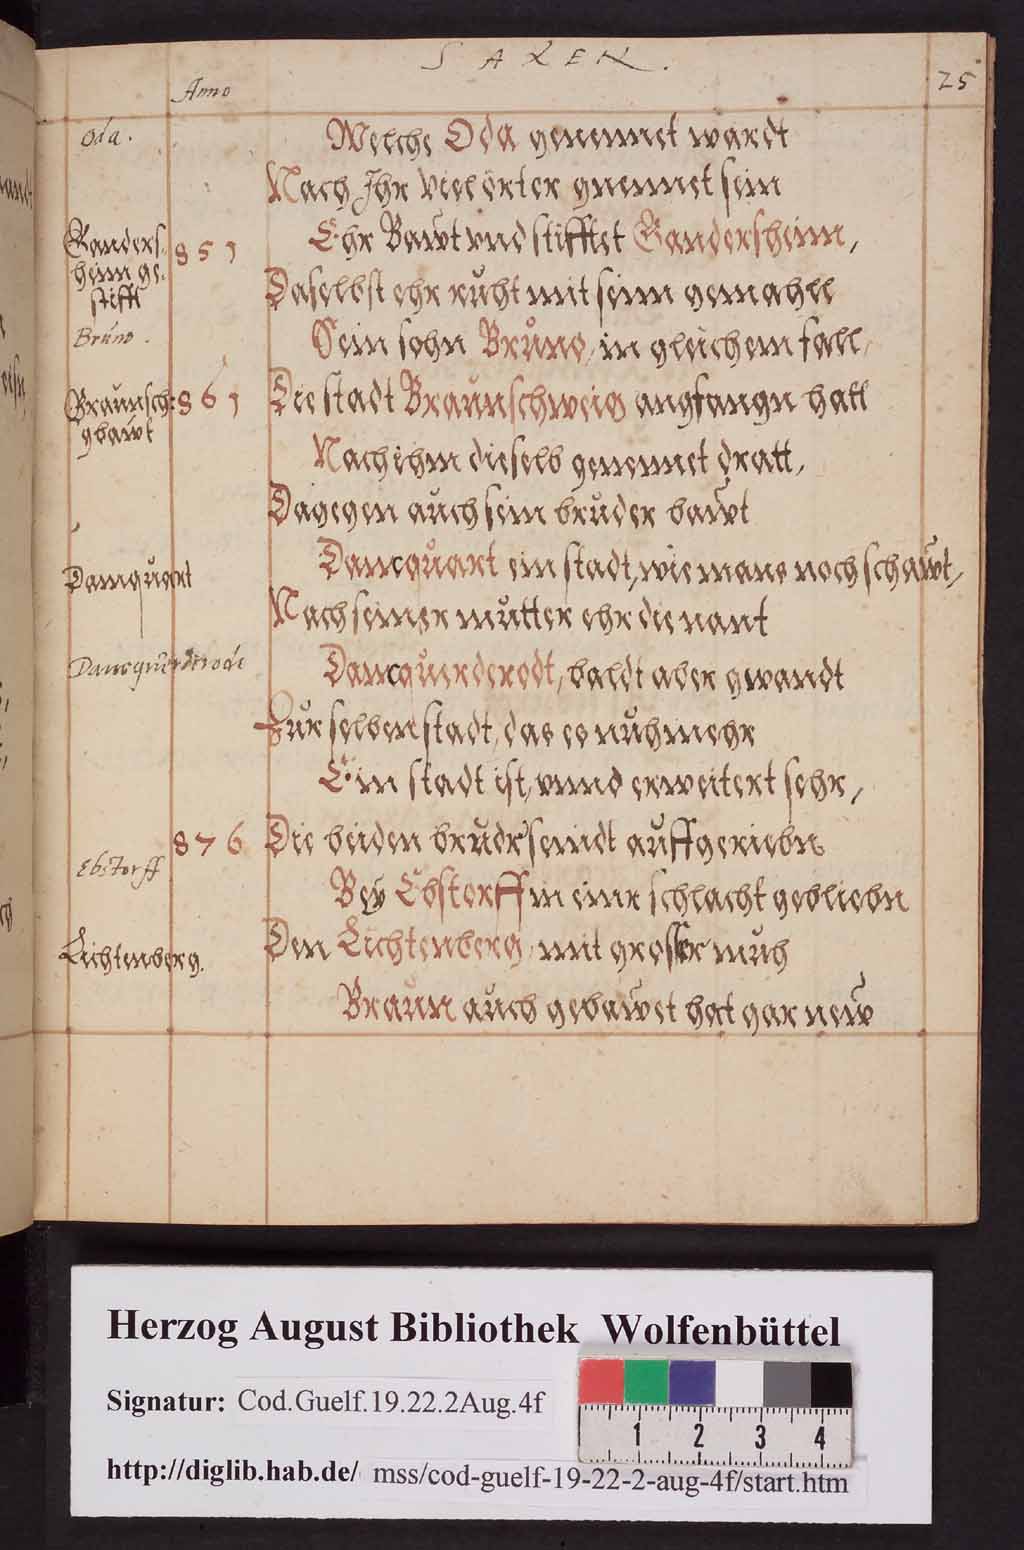 SAXEN.
25
Anno
Oda.
Welche Oda genennet wardt
Nach Ihr viel örter gnennet sein
Ganders-
heim ge-
stifft
851
Ehr Bawt vnd stifftet Gandersheim,
Daselbst ehr ruht mit seim gemahll
Bruno.
Sein sohn Bruno, in gleichem fall,
Braunsch:
gbawt
861
Die stadt Braunschweig angfangn hatt
Nach ihm dieselb genennet dratt,
Dagegen auch sein bruder bawt
Damquart
Dancquart ein stadt, wie mans noch schawt,
Nach seiner mutter ehr die nant
Dancquerderode
Dancquerderodt, baldt aber gwandt
Zur selben stadt, das es nuhmehr
Ein stadt ist, vnnd erweitert sehr,
876
Die beiden brudr seindt auffgeriebn
Ebstorff
Bey Ebstorff in einr schlacht gebliebn
Lichtenberg.
Den Lichtenberg, mit grosser muh
Braun auch gebawet hat gar new
Herzog August Bibliothek Wolfenbüttel
Signatur: Cod.Guelf.19.22.2Aug.4f
1 2 3 4
http://diglib.hab.de/ mss/cod-guelf-19-22-2-aug-4f/start.htm